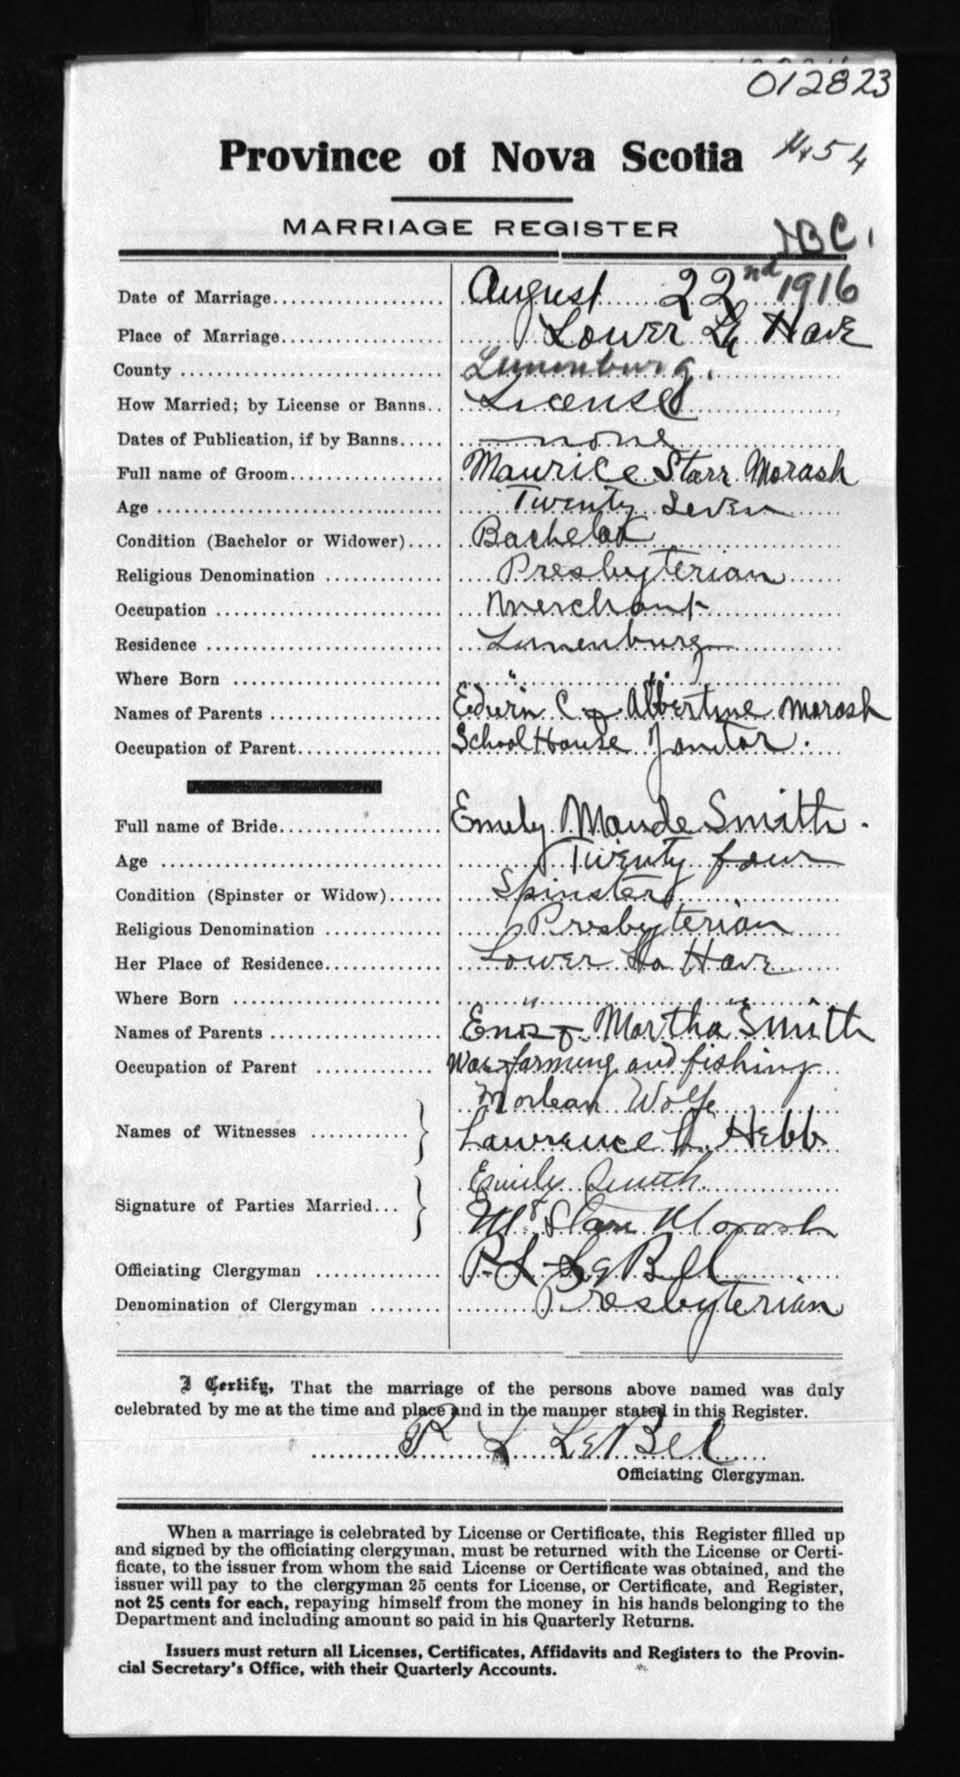 012823
Province of Nova Scotia
MARRIAGE REGISTER
Date of Marriage August 22nd 1916
Place of Marriage Lower La Have
County Lunenburg.
How Married; by License or Banns License
Dates of Publication, if by Banns none
Full name of Groom Maurice Starr Morash
Age Twenty Seven
Condition (Bachelor or Widower) Bachelor
Religious Denomination Presbyterian
Occupation Merchant
Residence Lunenburg
Where Born " "
Names of Parents Edwin C & Albertine Morash
Occupation of Parent School House Janitor.
Full name of Bride Emily Maude Smith.
Age Twenty four
Condition (Spinster or Widow) Spinster
Religious Denomination Presbyterian
Her Place of Residence Lower La Have
Where Born " "
Names of Parents Enos & Martha Smith
Occupation of Parent Was farming and fishing
Wolfe
Names of Witnesses Lawrence Hebb
Emily Smith
Signature of Parties Married Starr Morash
Officiating Clergyman P. L. LeBel
Denomination of Clergyman Presbyterian
I Certify, That the marriage of the persons above named was duly
celebrated by me at the time and place and in the manner stated in this Register.
P L LeBel
Officiating Clergyman.
When a marriage is celebrated by License or Certificate, this Register filled up
and signed by the officiating clergyman, must be returned with the License or Certi-
ficate, to the issuer from whom the said License or Certificate was obtained, and the
issuer will pay to the clergyman 25 cents for License, or Certificate, and Register,
not 25 cents for each, repaying himself from the money in his hands belonging to the
Department and including amount so paid in his Quarterly Returns.
Issuers must return all Licenses, Certificates, Affidavits and Registers to the Provin-
cial Secretary's Office, with their Quarterly Accounts.